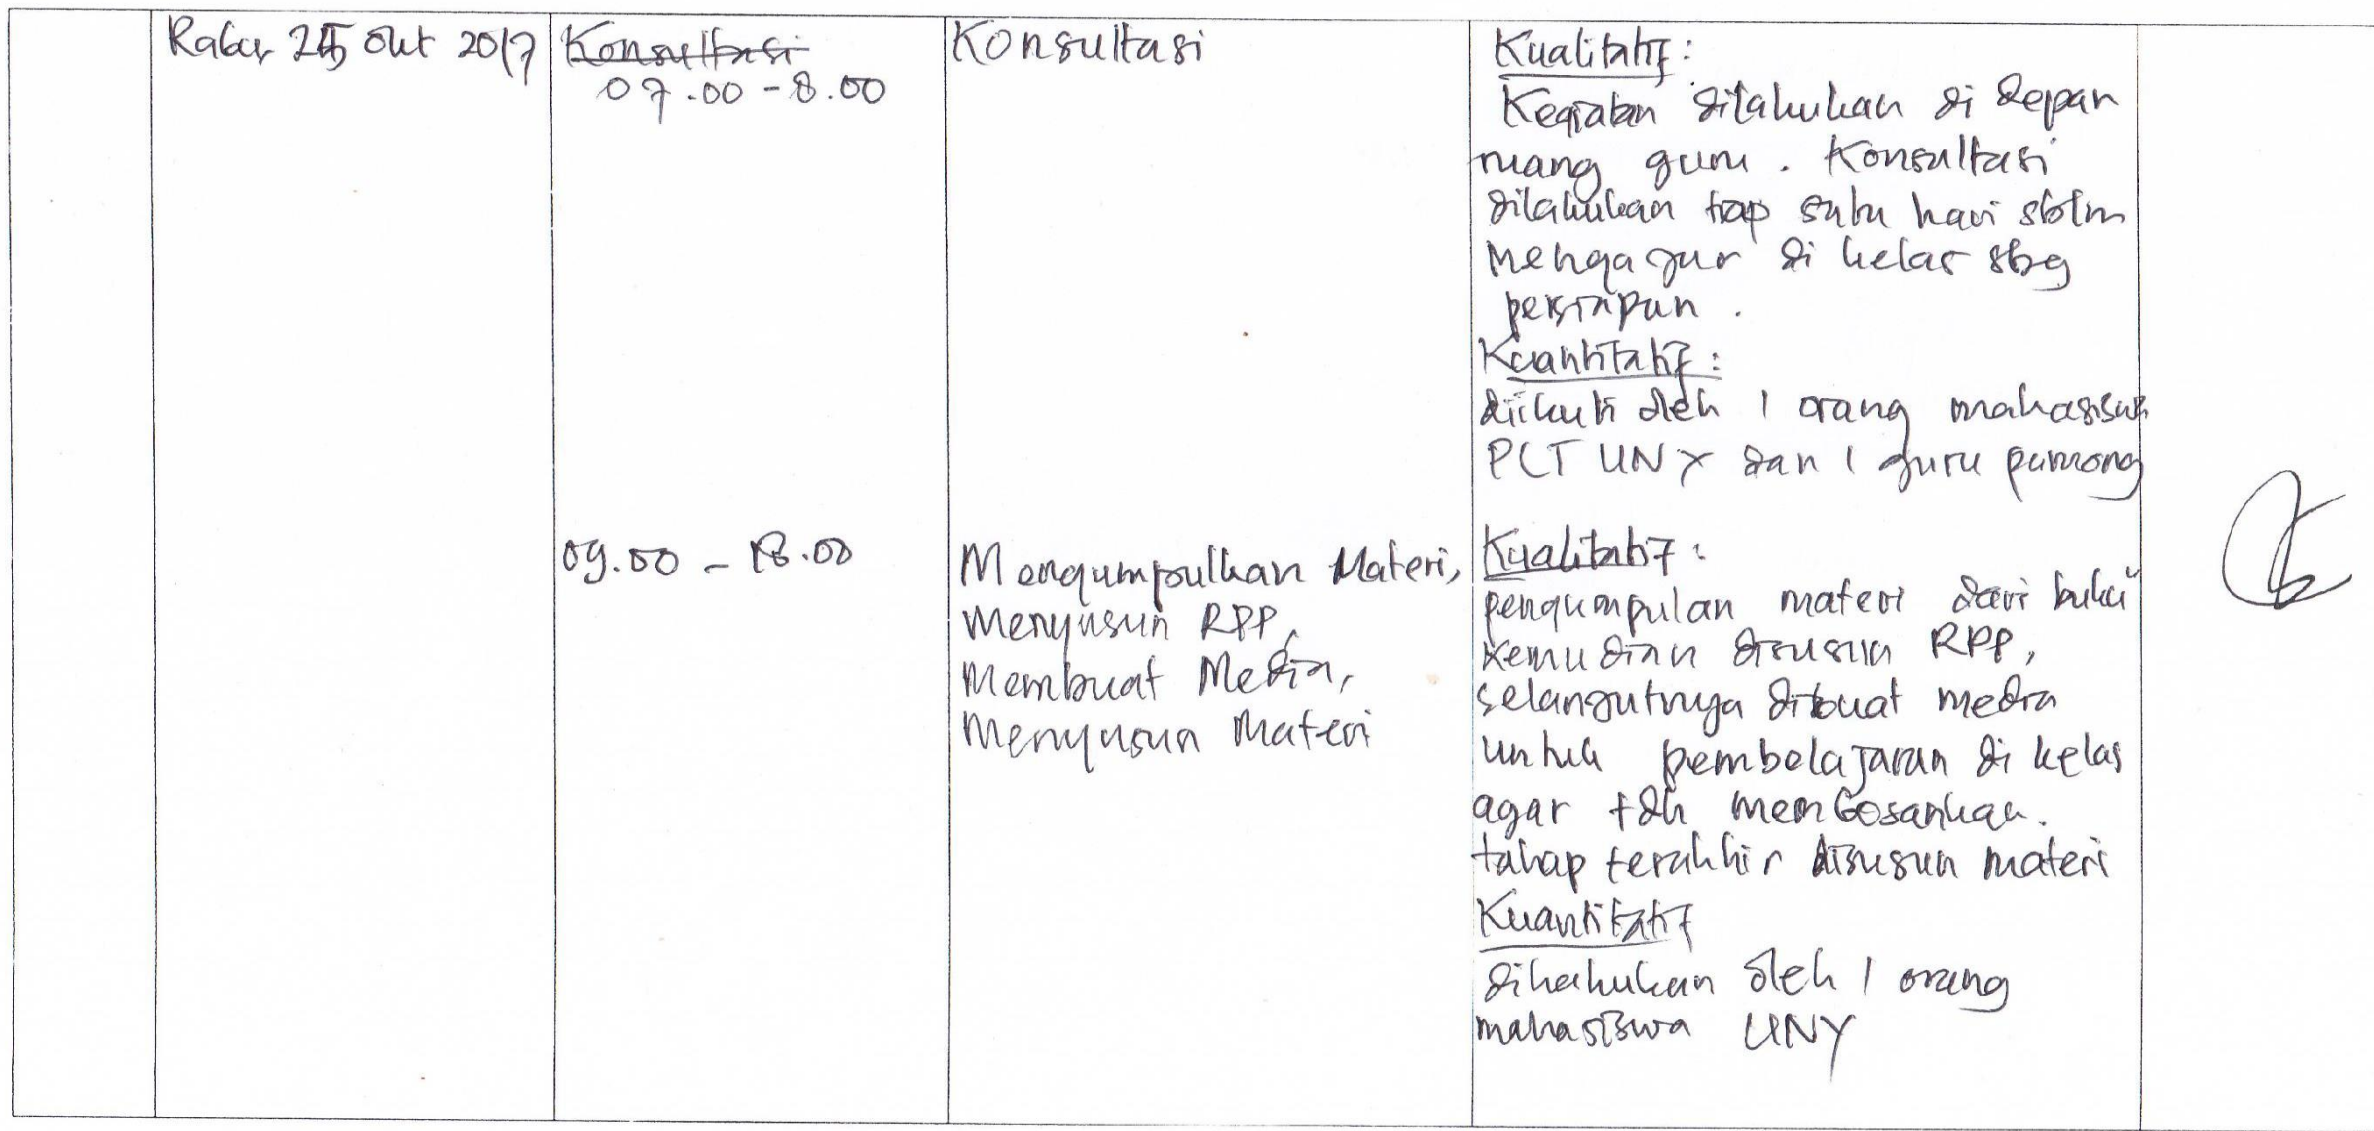 Rabu 25 Okt 2017
Konsultasi
07.00 - 8.00
Konsultasi
Kualitatif :
Kegiatan dilakukan di depan
ruang guru. Konsultasi
dilakukan tiap satu hari sblm
mengajar di kelas sbg
persiapan.
Kuantitatif :
diikuti oleh 1 orang mahasiswa
PLT UNY dan 1 guru pamong
09.00 - 18.00
Mengumpulkan Materi,
Menyusun RPP,
Membuat Media,
Menyusun Materi
Kualitatif :
pengumpulan materi dari buku
kemudian disusun RPP,
selanjutnya dibuat media
untuk pembelajaran di kelas
agar tdk membosankan.
tahap terakhir disusun materi
Kuantitatif
dilakukan oleh 1 orang
mahasiswa UNY